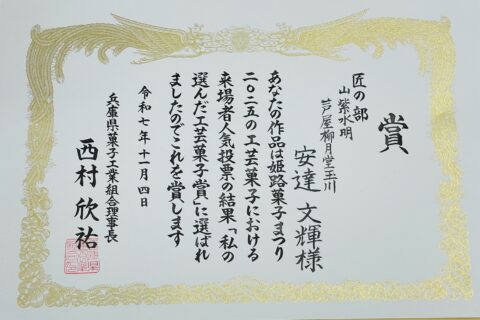 賞
匠の部
山紫水明
芦屋柳月堂玉川
安達文輝様
あなたの作品は姫路菓子まつり
二〇二五の工芸菓子における
来場者人気投票の結果「私の
選んだ工芸菓子賞」に選ばれ
ましたのでこれを賞します
令和七年十一月四日
兵庫県菓子工業組合理事長
西村欣祐